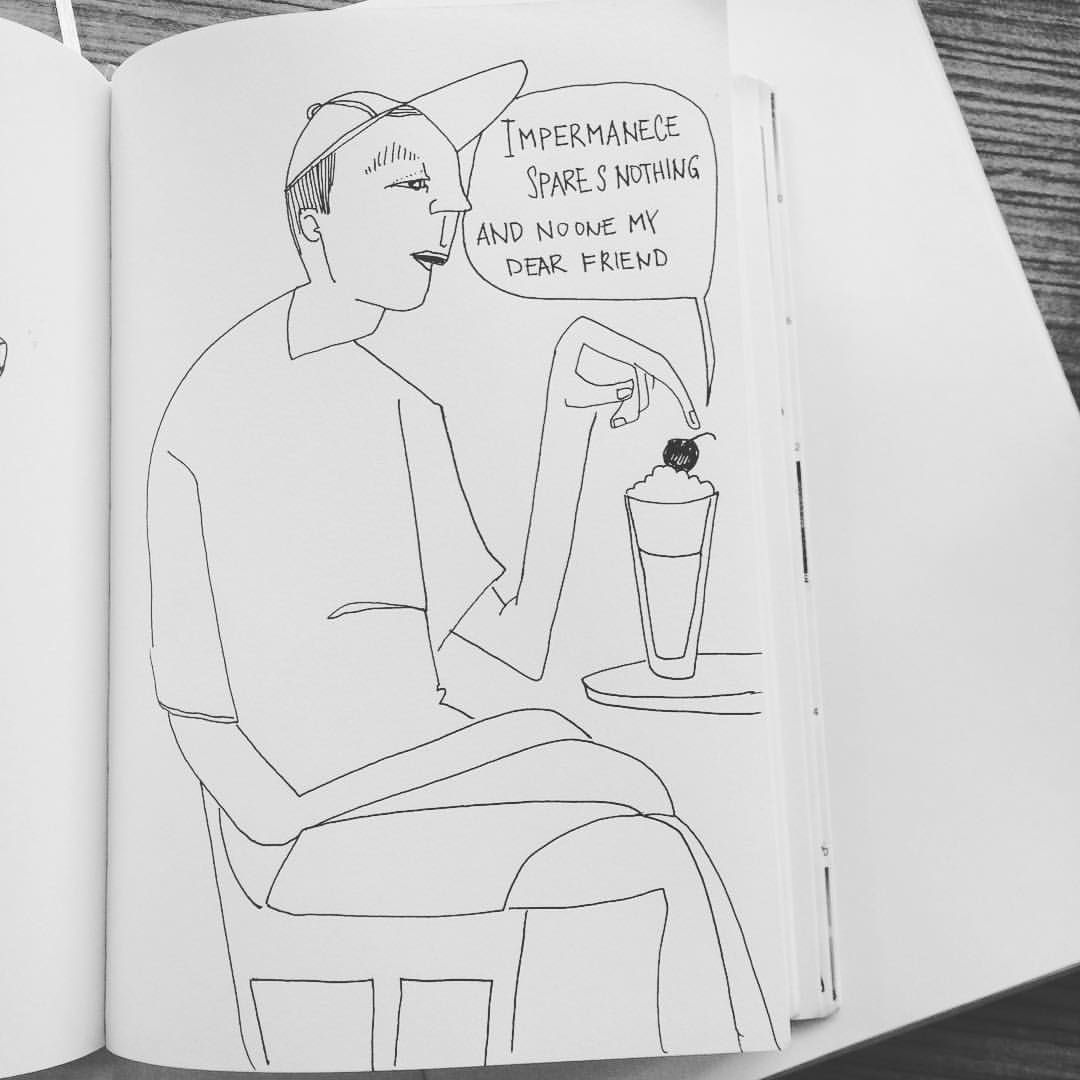 IMPERMANECE
SPARES NOTHING
AND NO ONE MY
DEAR FRIEND